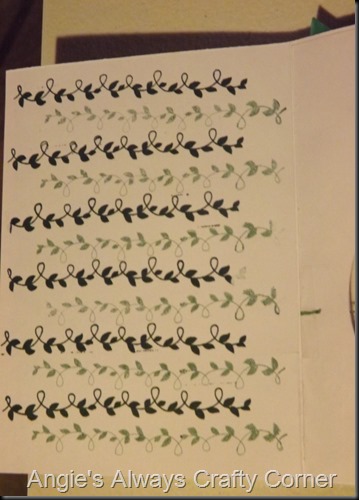 Angie's Always Crafty Corner